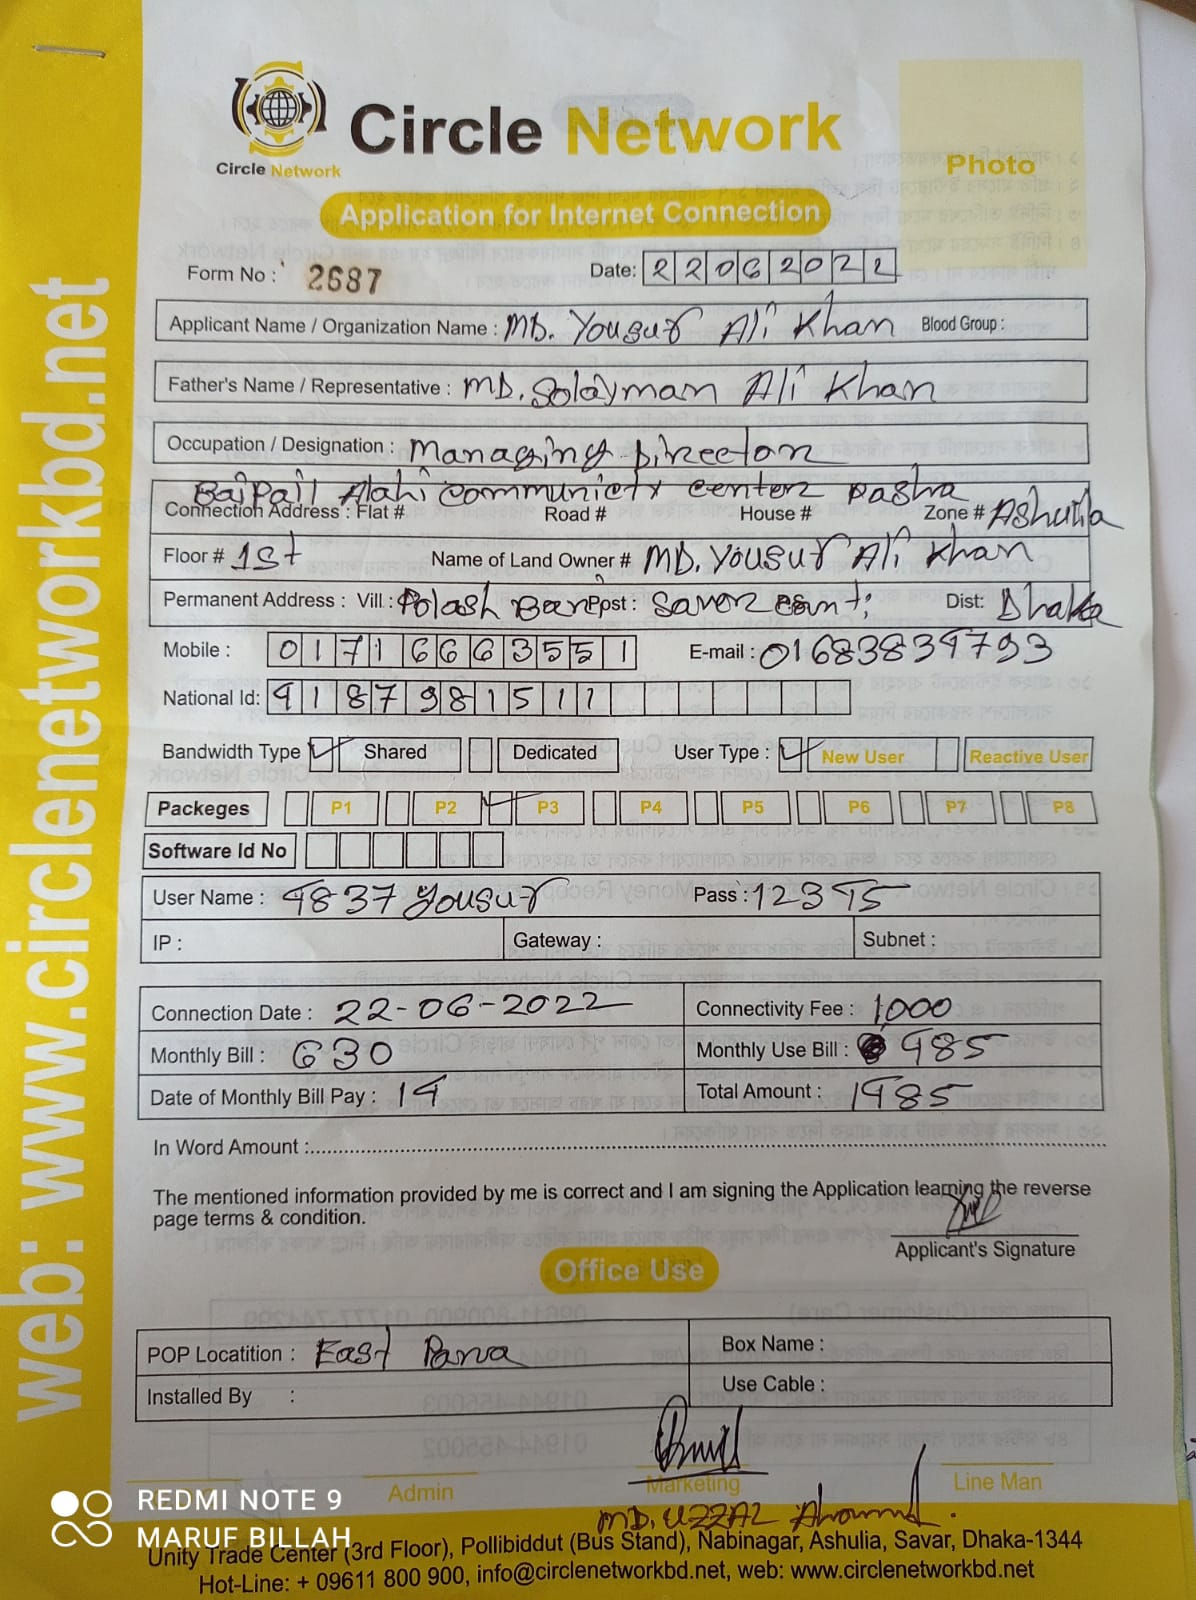 web: www.circlenetworkbd.net
Circle Network
Circle Network
Photo
Application for Internet Connection
Form No : 2687 Date: 22062022
Applicant Name / Organization Name : MD. Yousuf Ali Khan Blood Group :
Father's Name / Representative : MD. Solayman Ali Khan
Occupation / Designation : Managing Director
Baipail Alahi Community Center Pasha
Connection Address : Flat # Road # House # Zone # Ashulia
Floor # 1st Name of Land Owner # MD. Yousuf Ali Khan
Permanent Address : Vill : Polash Bari Post : Saver Dist: Dhaka
Mobile : 01716663551 E-mail : 01683839793
National Id: 9187981511
Bandwidth Type Shared Dedicated User Type : New User Reactive User
Packeges P1 P2 P3 P4 P5 P6 P7 P8
Software Id No
User Name : 4837 yousuf Pass : 12345
IP : Gateway : Subnet :
Connection Date : 22-06-2022 Connectivity Fee : 1000
Monthly Bill : 630 Monthly Use Bill : 485
Date of Monthly Bill Pay : 14 Total Amount : 1485
In Word Amount :
The mentioned information provided by me is correct and I am signing the Application learning the reverse
page terms & condition.
Applicant's Signature
Office Use
POP Locatition : East Para Box Name :
Installed By : Use Cable :
Admin Marketing Line Man
MD. UZZAL
REDMI NOTE 9
MARUF BILLAH
Unity Trade Center (3rd Floor), Pollibiddut (Bus Stand), Nabinagar, Ashulia, Savar, Dhaka-1344
Hot-Line: + 09611 800 900, info@circlenetworkbd.net, web: www.circlenetworkbd.net